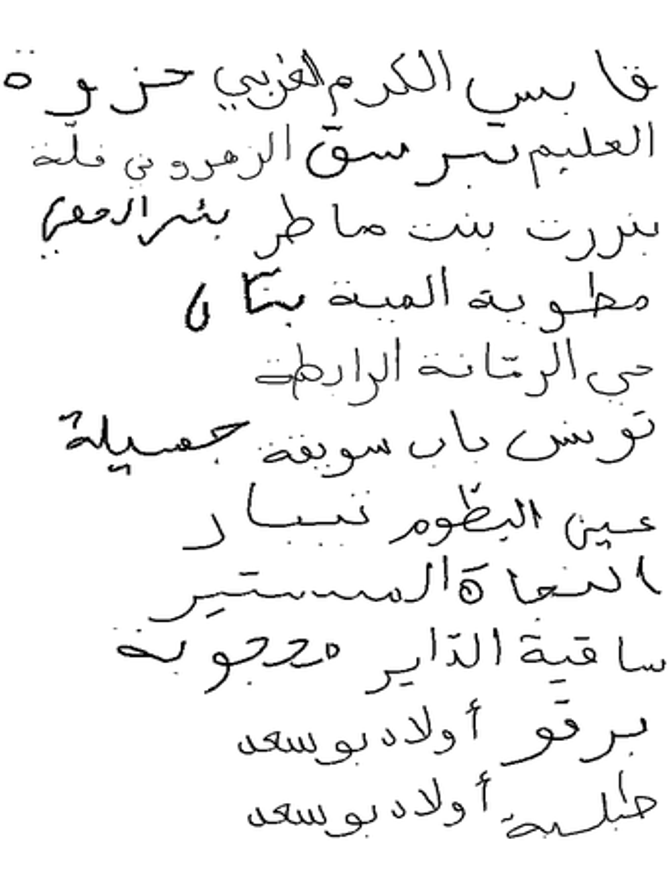 قابس الكرم الغربي حزوة
العليم تبرسق الزهروني فلّة
بنزرت بنت ماطر بئر الحفي
مطوية المية بتّان
حي الرمّانة الرابطة
تونس باب سويقة جميلة
عين البطّوم نيبار
النجاة المنستير
ساقية الدّاير محجوبة
برقو أولاد بوسعد
طبلبة أولاد بوسعد